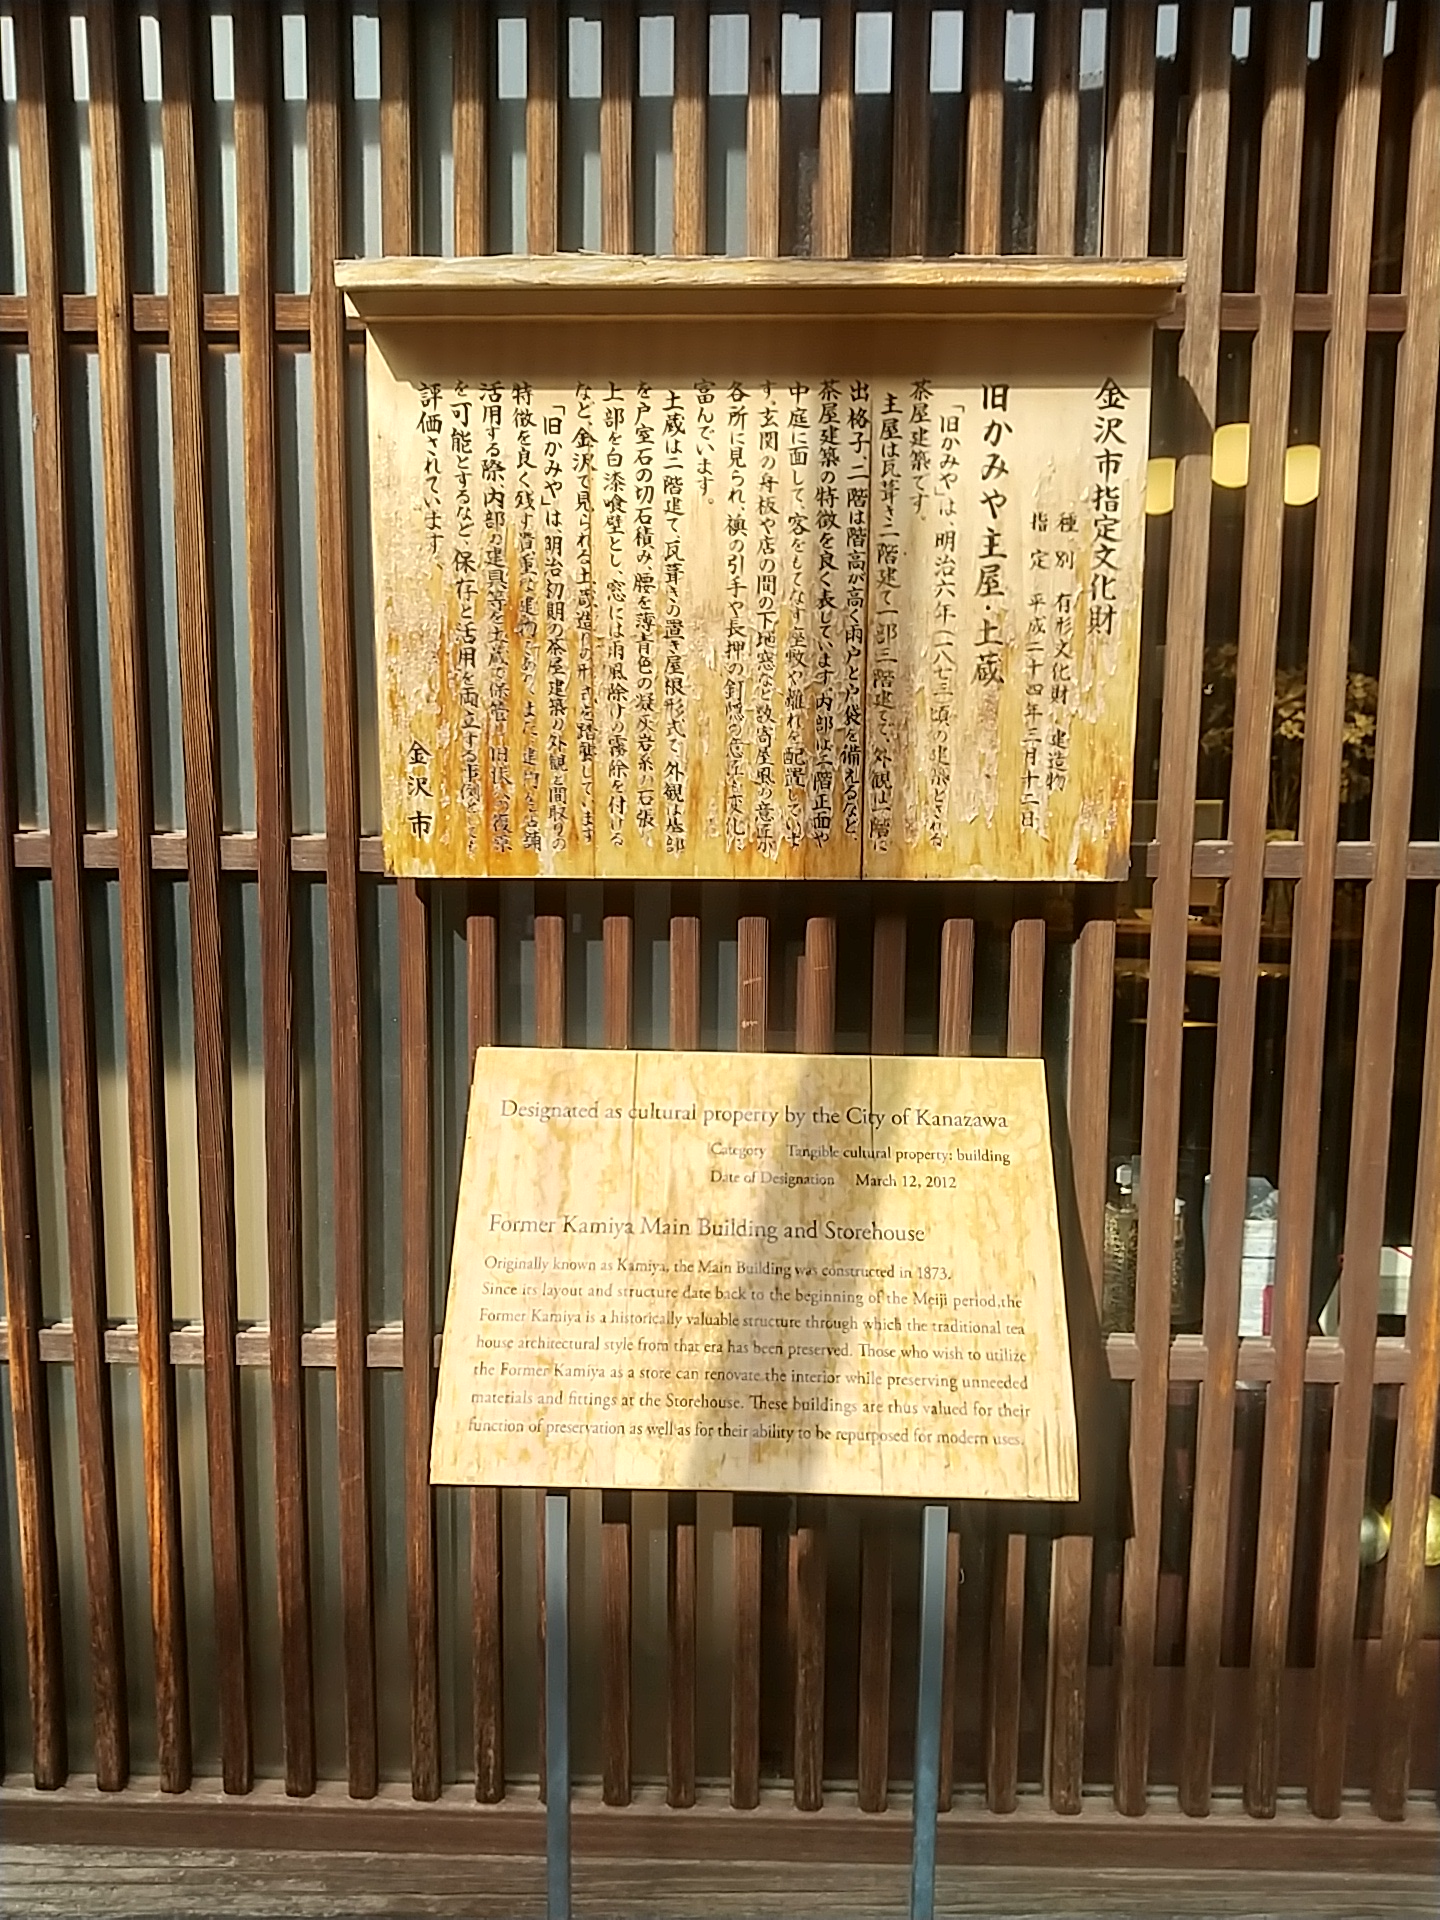 金沢市指定文化財
種別 有形文化財 建造物
指定 平成二十四年三月十二日
旧かみや主屋・土蔵
「旧かみや」は、明治六年(一八七三)頃の建築とされる
茶屋建築です。
主屋は瓦葺き二階建て一部三階建てで、外観は一階に
出格子、二階は階高が高く雨戸と戸袋を備えるなど、
茶屋建築の特徴を良く表しています。内部は二階正面や
中庭に面して、客をもてなす座敷や離れを配置していま
す。玄関の舟板や店の間の下地窓など数寄屋風の意匠が
各所に見られ、襖の引手や長押の釘隠の意匠も変化に
富んでいます。
土蔵は二階建て、瓦葺きの置き屋根形式で、外観は基部
を戸室石の切石積み、腰を薄青色の凝灰岩系の石張
上部を白漆喰壁とし、窓には雨風除けの霧除を付ける
など、金沢で見られる土蔵造りの形式を踏襲しています。
「旧かみや」は、明治初期の茶屋建築の外観と間取りの
特徴を良く残す貴重な建物であり、また、建物を店舗
活用する際、内部の建具等を土蔵で保管し旧状への復原
を可能とするなど、保存と活用を両立する事例として
評価されています。
金沢市
Designated as cultural property by the City of Kanazawa
Category Tangible cultural property: building
Date of Designation March 12, 2012
Former Kamiya Main Building and Storehouse
Originally known as Kamiya, the Main Building was constructed in 1873.
Since its layout and structure date back to the beginning of the Meiji period,the
Former Kamiya is a historically valuable structure through which the traditional tea
house architectural style from that era has been preserved. Those who wish to utilize
the Former Kamiya as a store can renovate the interior while preserving unneeded
materials and fittings at the Storehouse. These buildings are thus valued for their
function of preservation as well as for their ability to be repurposed for modern uses.